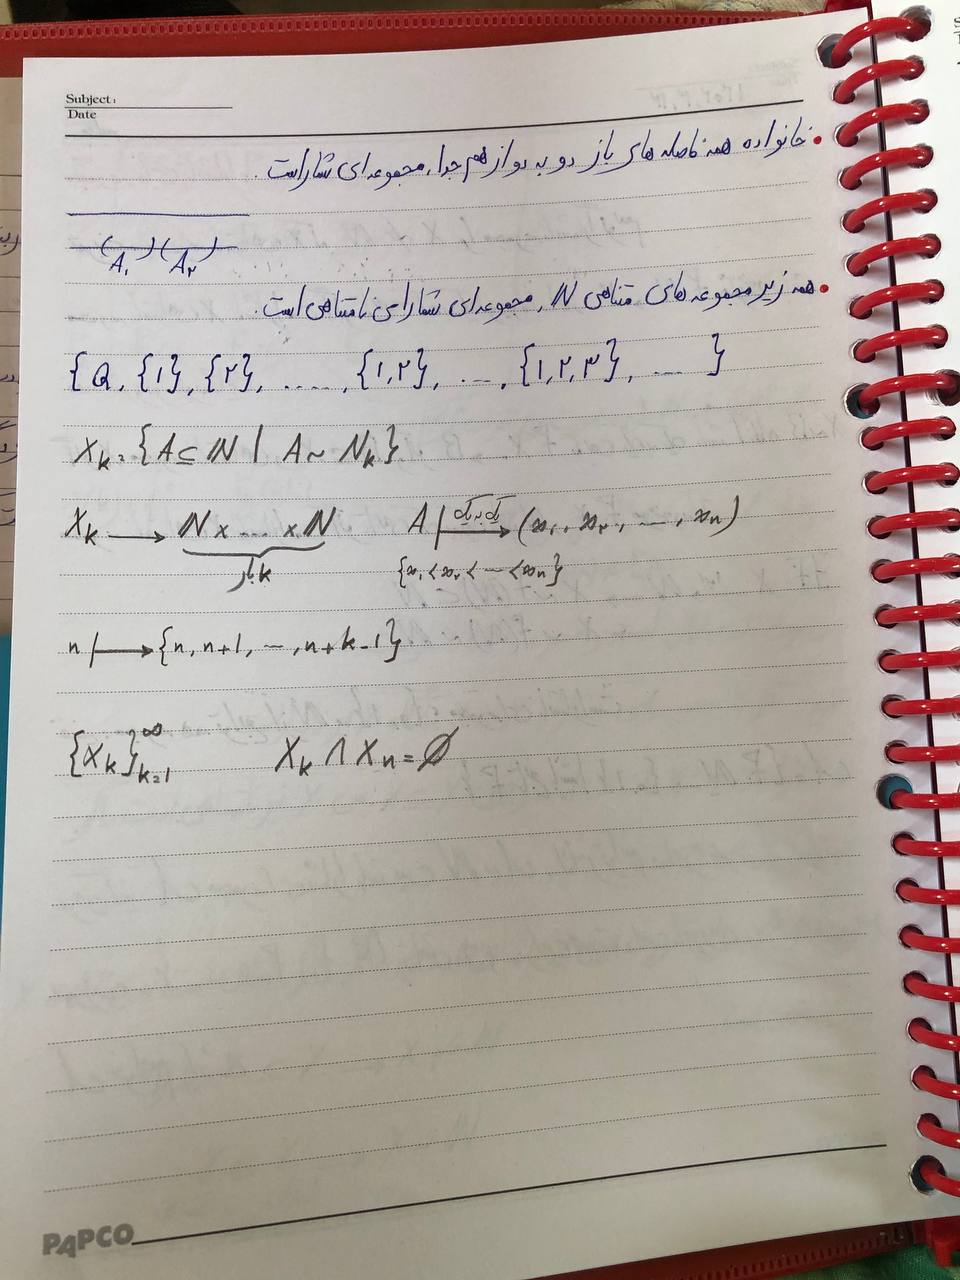 Subject:
Date
• خانواده همه فاصله های باز دو به دو از هم جدا، مجموعه ای شماراست.
( A₁ ) ( A₂ )
• همه زیر مجموعه های متناهی N، مجموعه ای شمارای نامتناهی است.
{Q, {۱}, {۲}, ....., {۱,۲}, ..., {۱,۲,۳}, ... }
X_k = {A ⊆ N | A ~ N_k}
X_k → N × ... × N A ↦ (x₁, x₂, ..., x_n) یک به یک
k بار {x₁ < x₂ < ... < x_n}
n ↦ {n, n+1, ..., n+k-1}
{X_k}_{k=1}^∞ X_k ∩ X_n = ∅
PAPCO